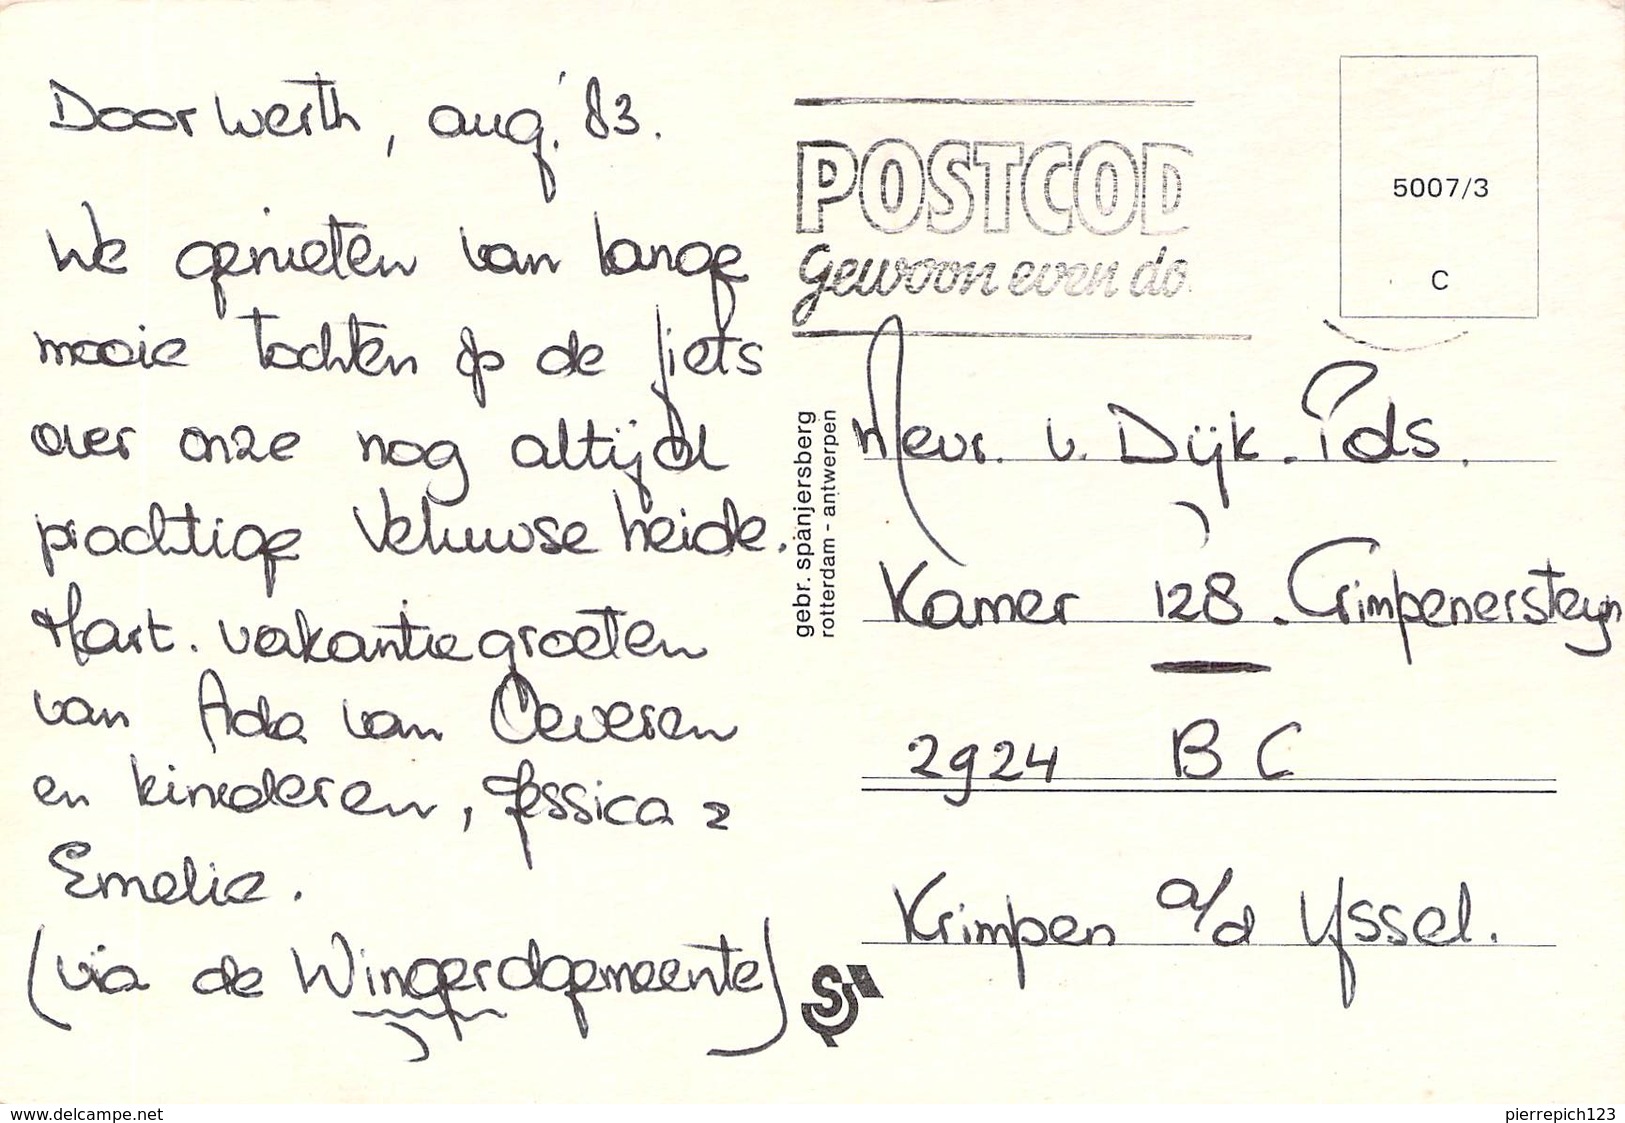 Doorwerth, aug. '83.
We genieten van lange
mooie tochten op de fiets
over onze nog altijd
prachtige Veluwse heide.
Hart. vakantiegroeten
van Ada van Oeveren
en kinederen, Jessica &
Emelie.
(via de Wingerdgemeente)
POSTCOD
Gewoon even do
5007/3
C
gebr. spanjersberg
rotterdam - antwerpen
Mevr. v. Dijk - Pols.
Kamer 128. Crimpenersteyn
2924 BC
Krimpen a/d IJssel.
www.delcampe.net
pierrepich123